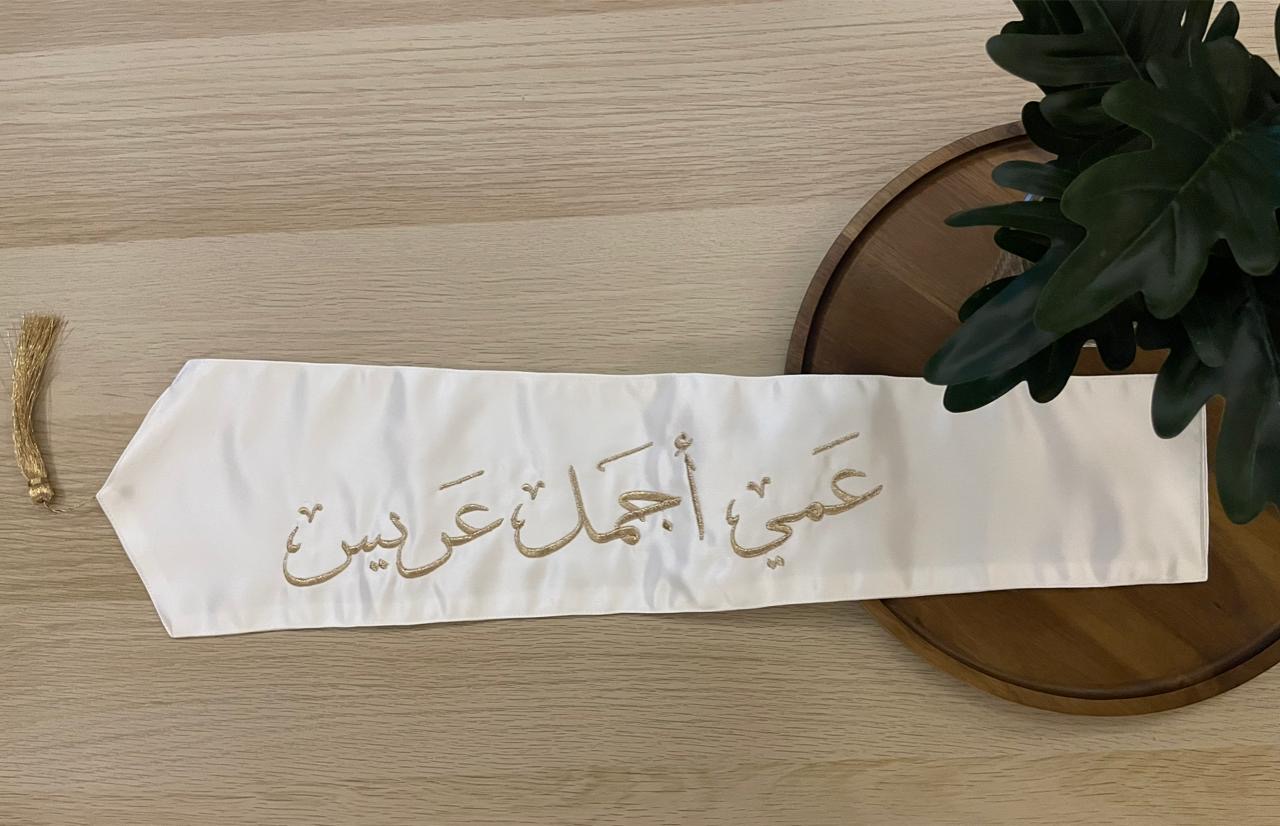 عَمي أَجمَل عَريس